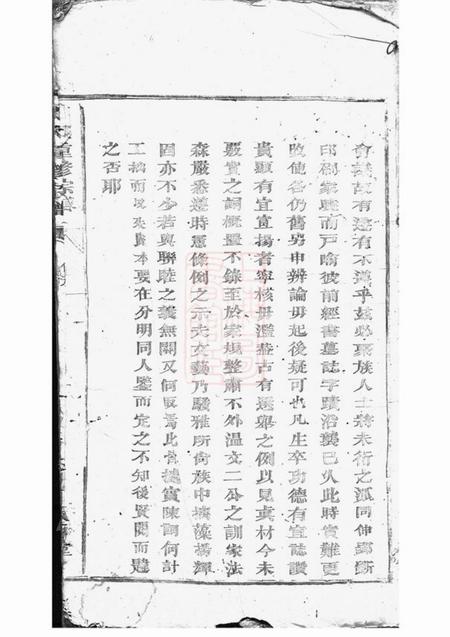 會議故有遵有不遵乎茲必聚族人士將未衍之派同伸
印刷家 而戶喻彼前經書墓誌字蹟沿襲已久此時實難更
改使各仍舊另申辨論毋起後疑可也凡生卒功德有宜誌讚
貴顯有宜宣揚者寧核毋濫蓋古有選舉之例以見真材今未
嚴實之詞概置不錄至於家規整肅不外溫文二公之訓家法
森嚴悉遵時憲條例之示夫文藝乃騷雅所尚族中摛藻揚輝
固亦不少若與聯睦之義無關又何取焉此皆據實陳詞何計
工拙而 本要在分明同人鑒而定之不知後賢閱而韙
之否耶
重修族譜